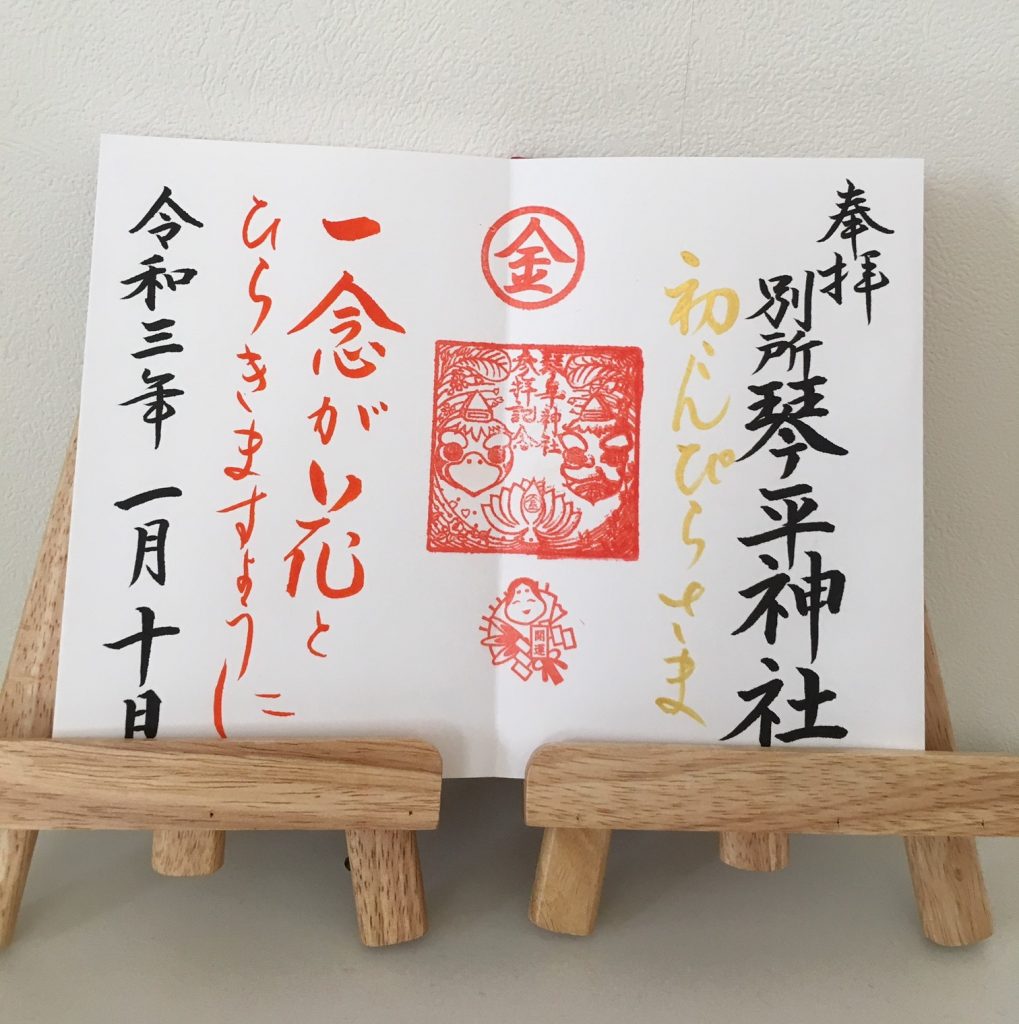 奉拝
別所琴平神社
初こんぴらさま
金
琴平神社
参拝記念
金
開運
一念がい花と
ひらきますように
令和三年 一月 十日